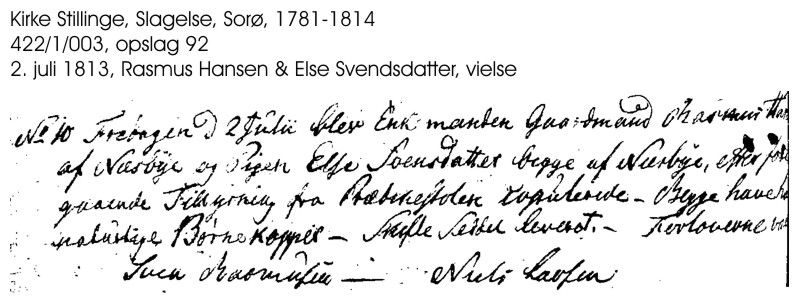 Kirke Stillinge, Slagelse, Sorø, 1781-1814
422/1/003, opslag 92
2. juli 1813, Rasmus Hansen & Else Svendsdatter, vielse
No 10 Fredagen D 2 Julii blev Enkemanden Gaardmand Rasmus Han
af Næsbye og Pigen Else Svensdatter begge af Næsbye, efter fore
gaaende Tillysning fra Prædikestolen copulerede - Begge have ha
naturlige Børnekopper - Skifte Seddel leveret. - Forloverne var
Sven Rasmusen — Niels Larsen